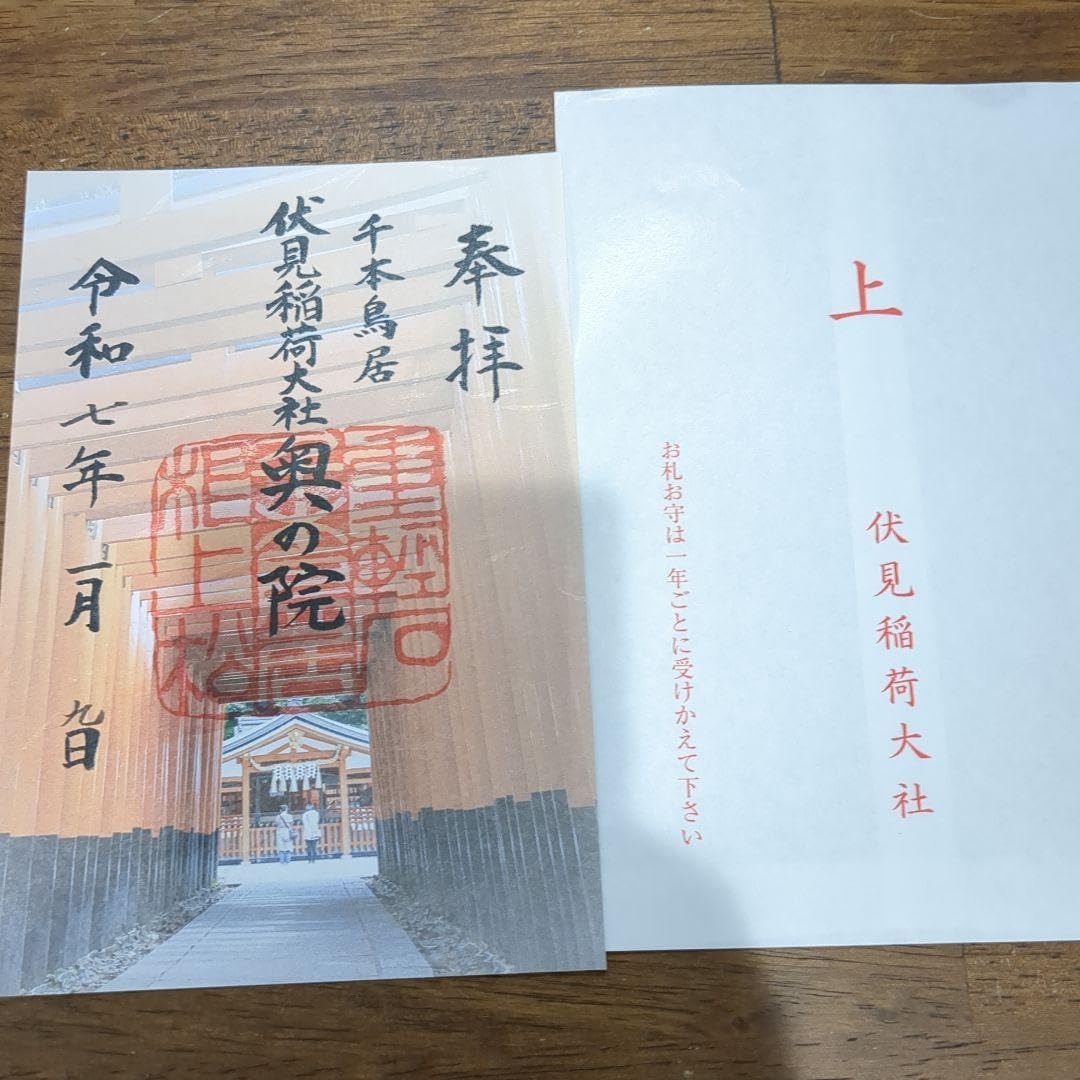 奉拝
千本鳥居
伏見稲荷大社奥の院
令和七年一月九日
重軽石
上
伏見稲荷大社
お札お守は一年ごとに受けかえて下さい